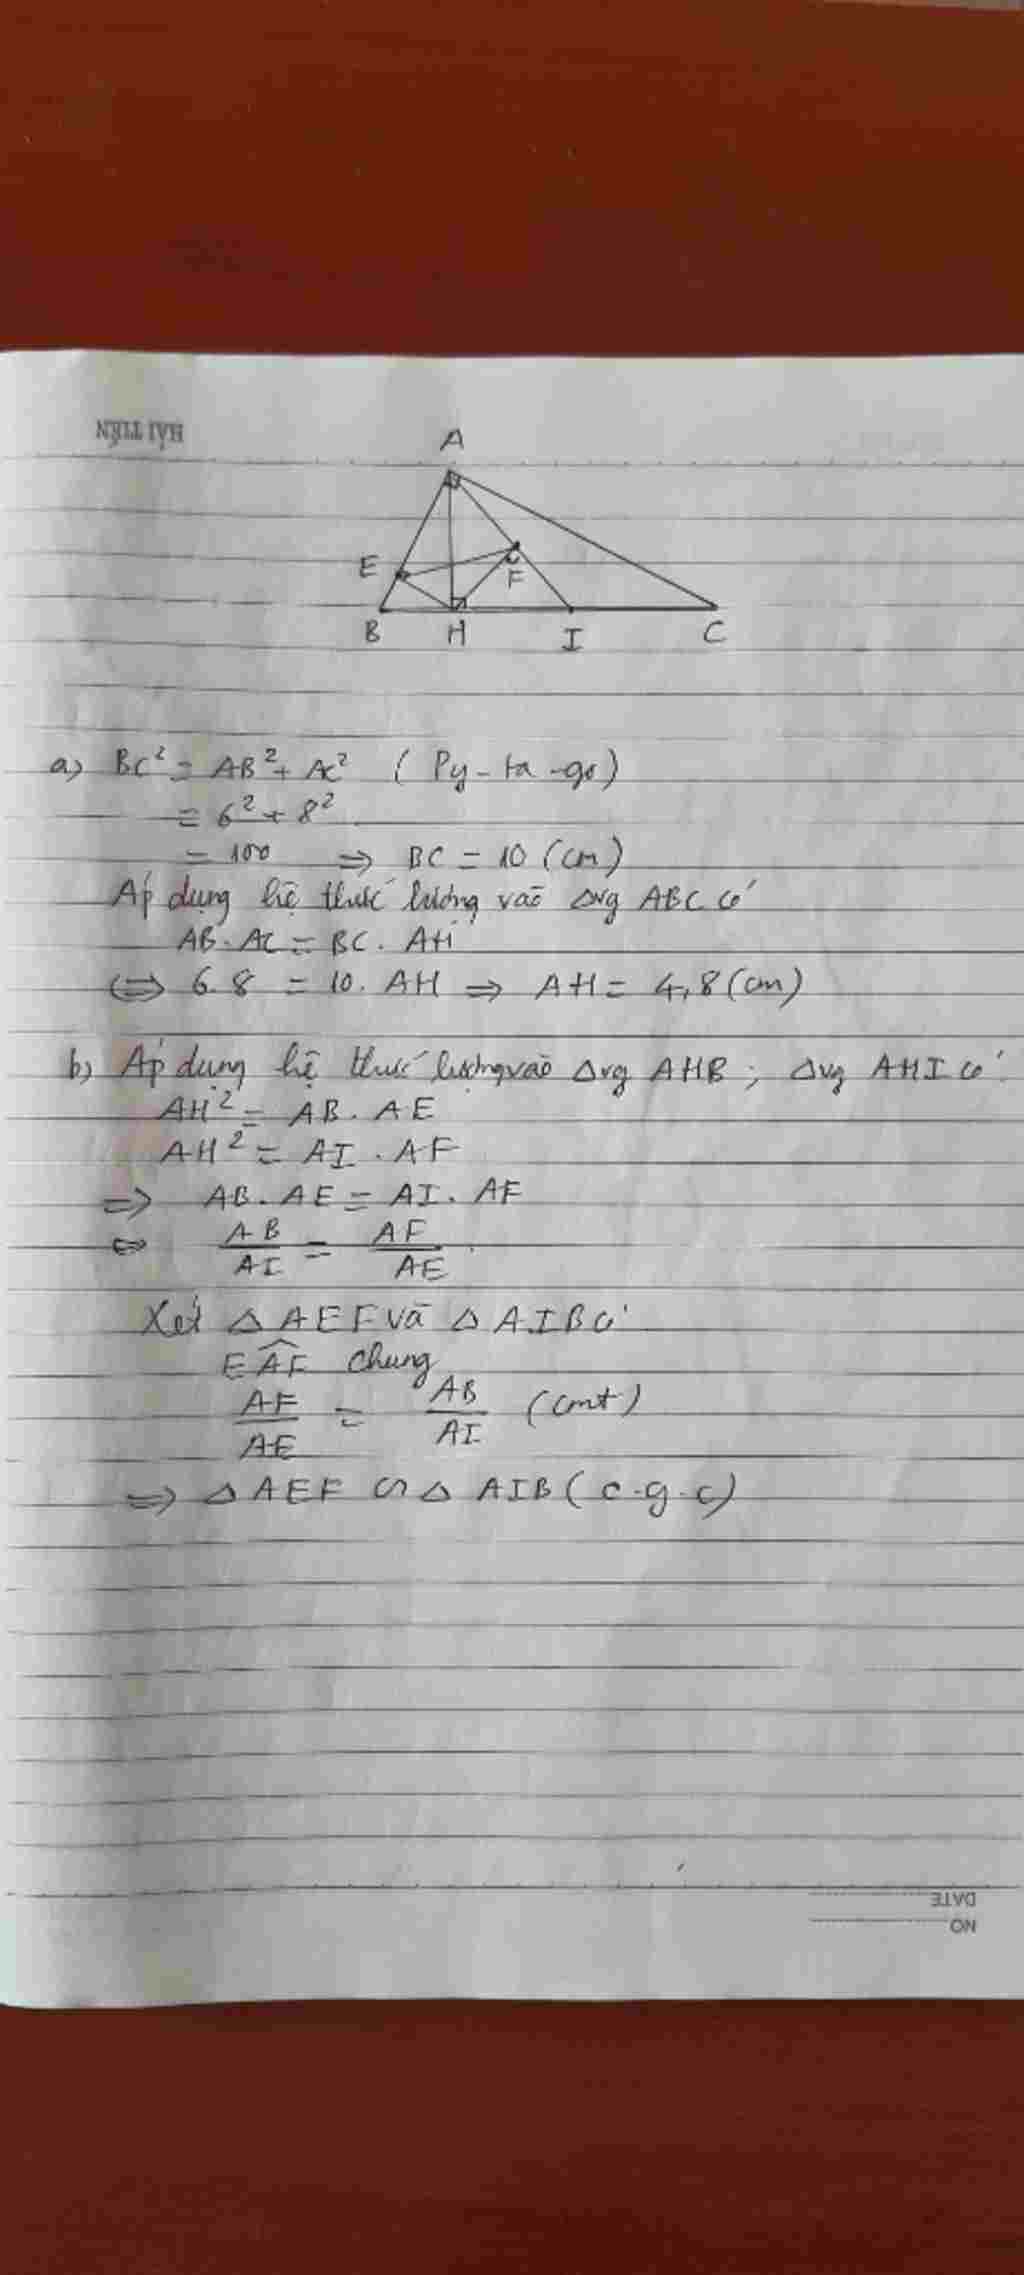 HẢI TIẾN
A
E
F
B H I C
a) BC² = AB² + AC² ( Py-ta-go)
= 6² + 8²
= 100 ⇒ BC = 10 (cm)
Áp dụng hệ thức lượng vào Δvg ABC có
AB. AC = BC. AH
⇔ 6. 8 = 10. AH ⇒ AH = 4,8 (cm)
b) Áp dụng hệ thức lượng vào Δvg AHB ; Δvg AHI có
AH² = AB. AE
AH² = AI . AF
⇒ AB. AE = AI. AF
⇔ AB/AI = AF/AE
Xét Δ AEF và Δ AIB có
EAF chung
AF/AE = AB/AI (cmt)
⇒ Δ AEF ∽ Δ AIB ( c-g-c)
DATE
NO